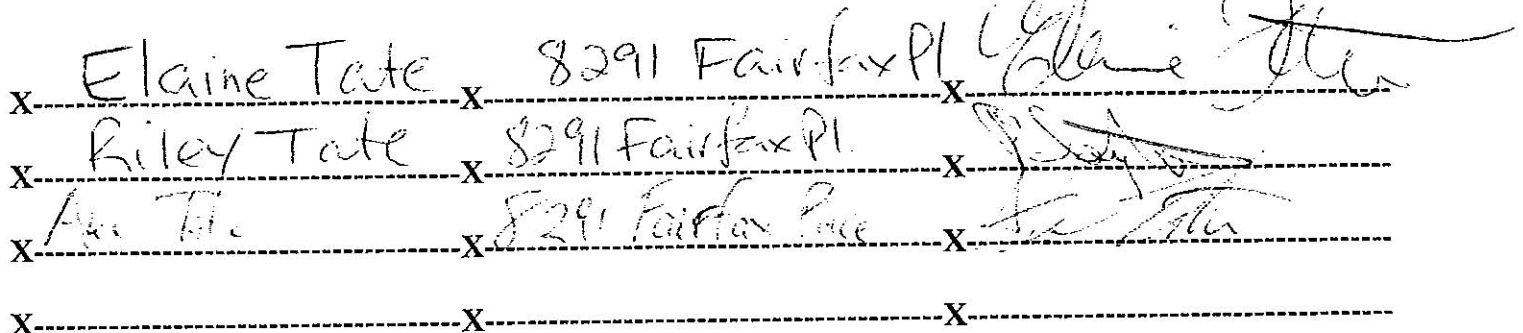 Elaine Tate 8291 Fairfax Pl Elaine Tate
X X X
Riley Tate 8291 Fairfax Pl.
X X X
8291 Fairfax
X X X
X X X